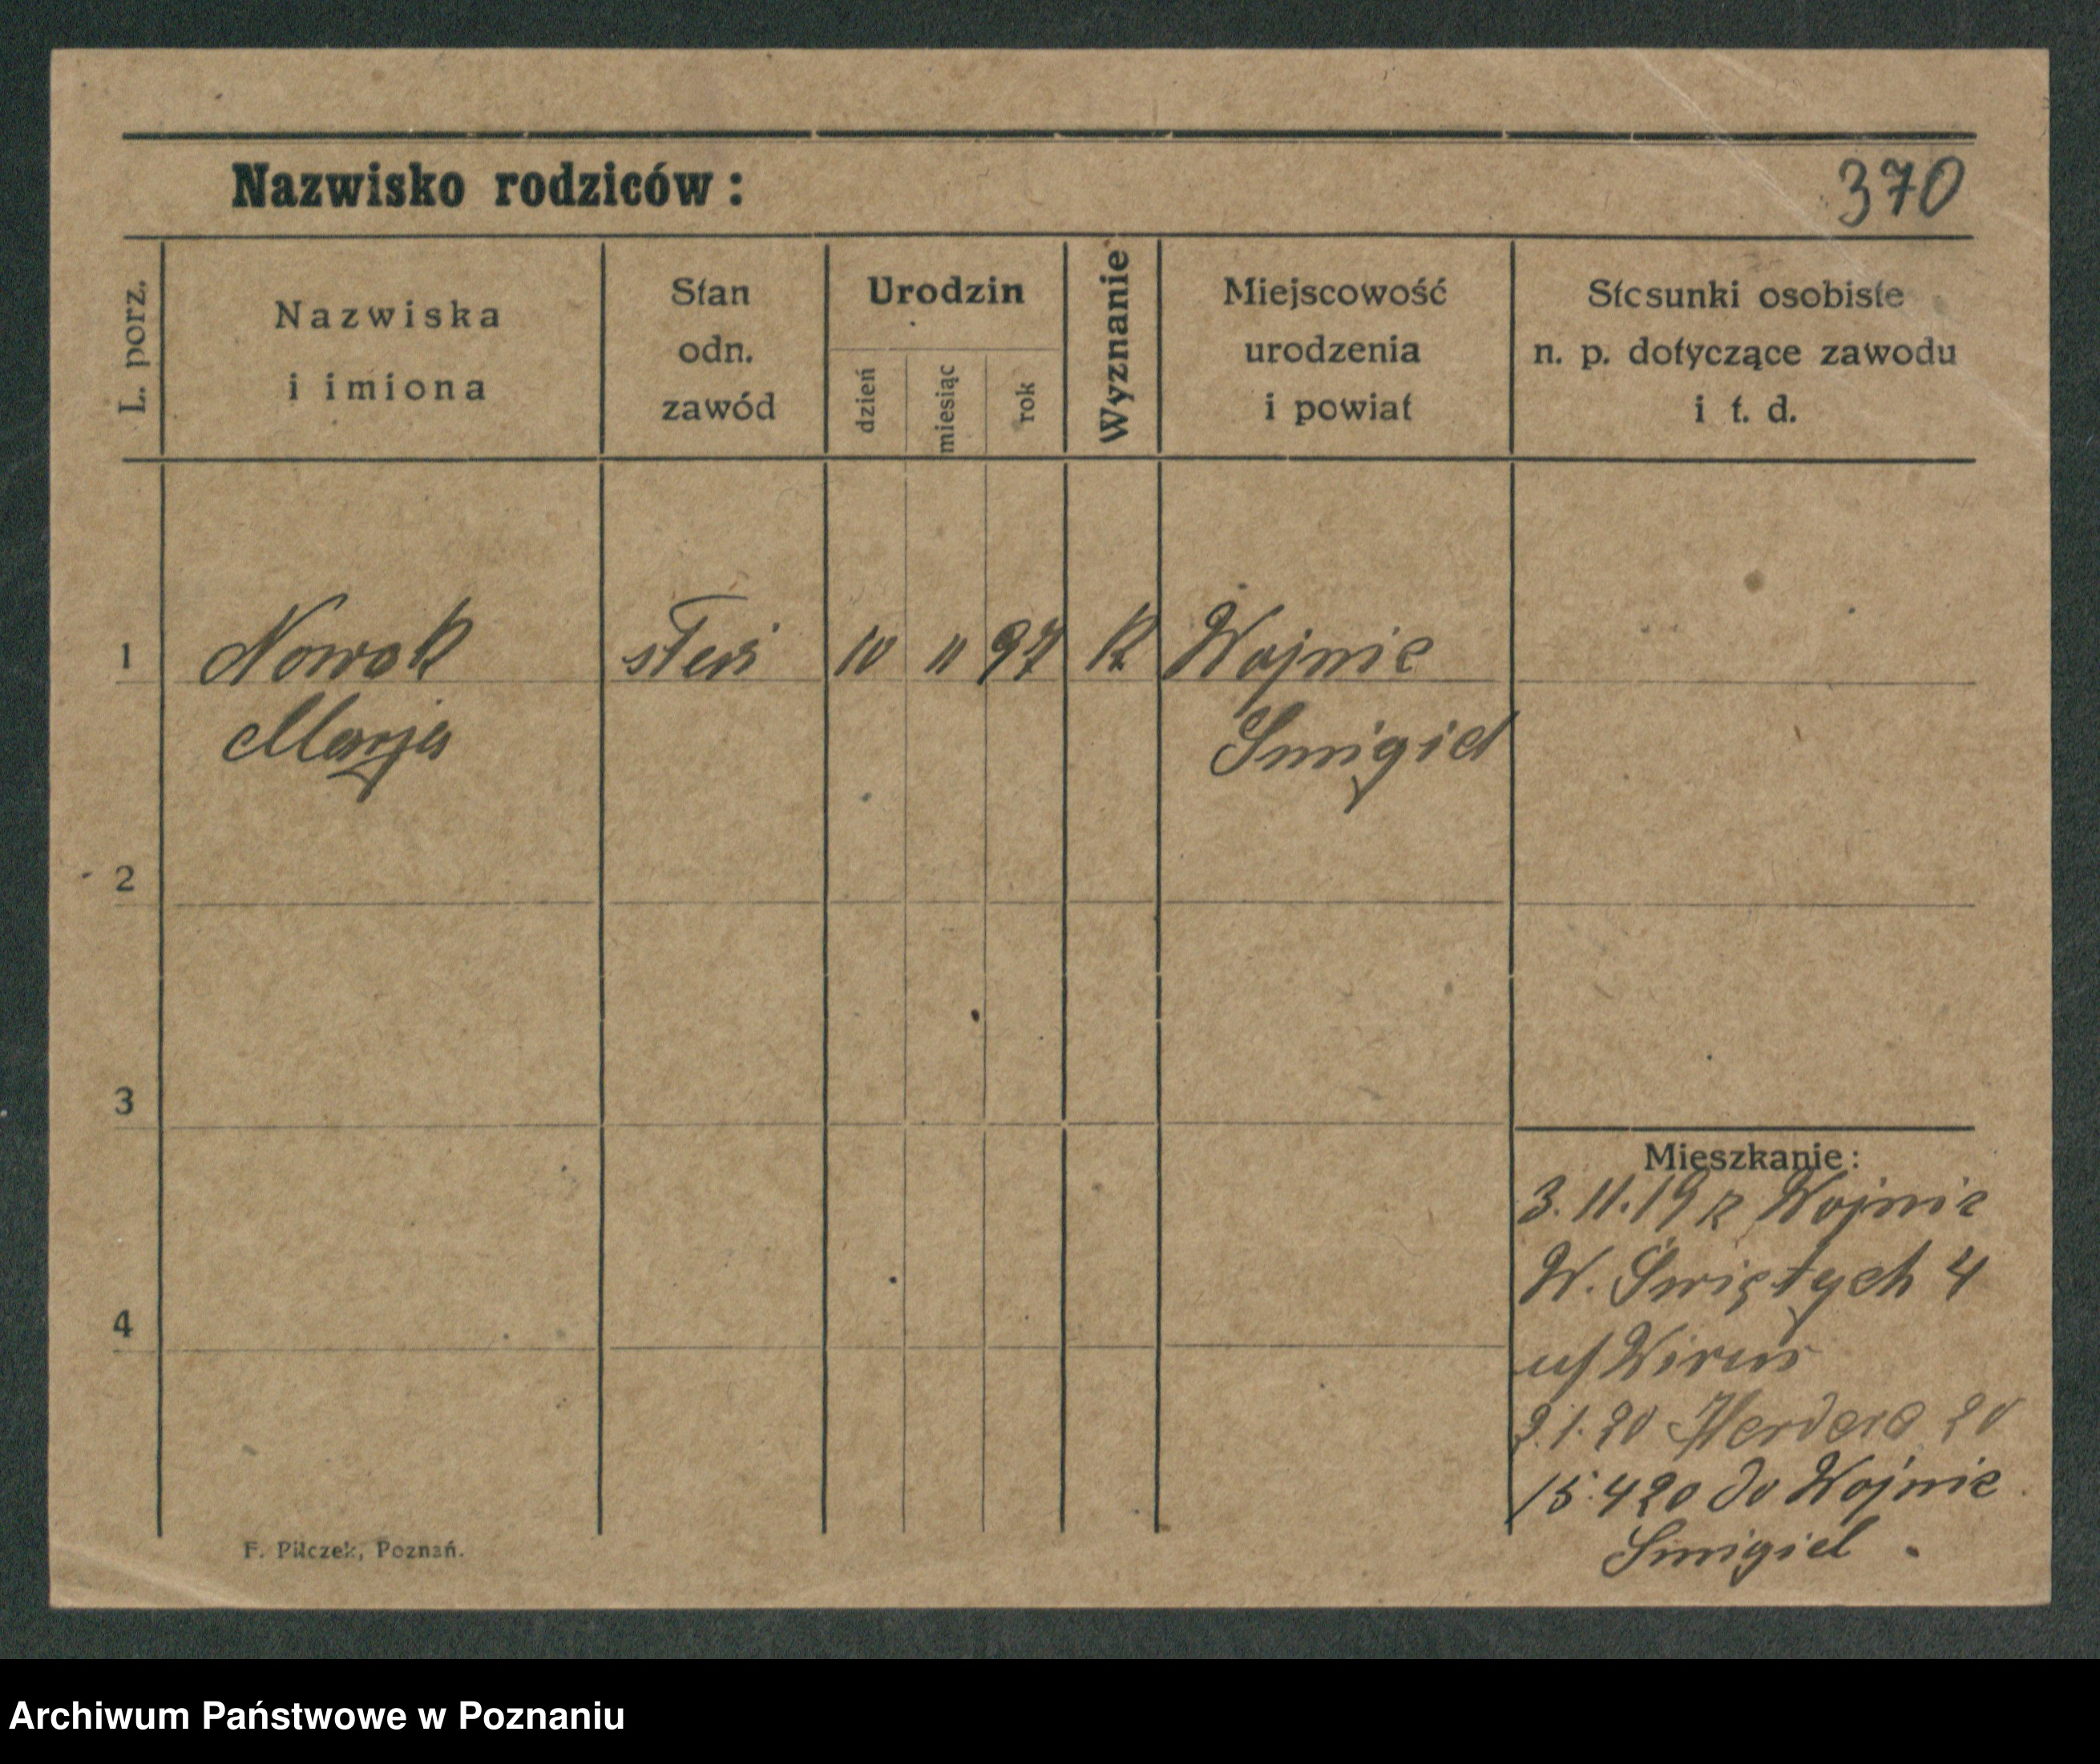 Nazwisko rodziców:
370
L. porz.
Nazwiska
i imiona
Stan
odn.
zawód
Urodzin
dzień
miesiąc
rok
Wyznanie
Miejscowość
urodzenia
i powiat
Stosunki osobiste
n. p. dotyczące zawodu
i t. d.
1
Nowak
Marja
10 11 97
K
Wojnic
Smigiel
2
3
4
Mieszkanie:
3.11.19 z Wojnic
W. Świętych 4
Herdera 20
15.4 20 do Wojnic
Smigiel.
F. Pilczek, Poznań.
Archiwum Państwowe w Poznaniu